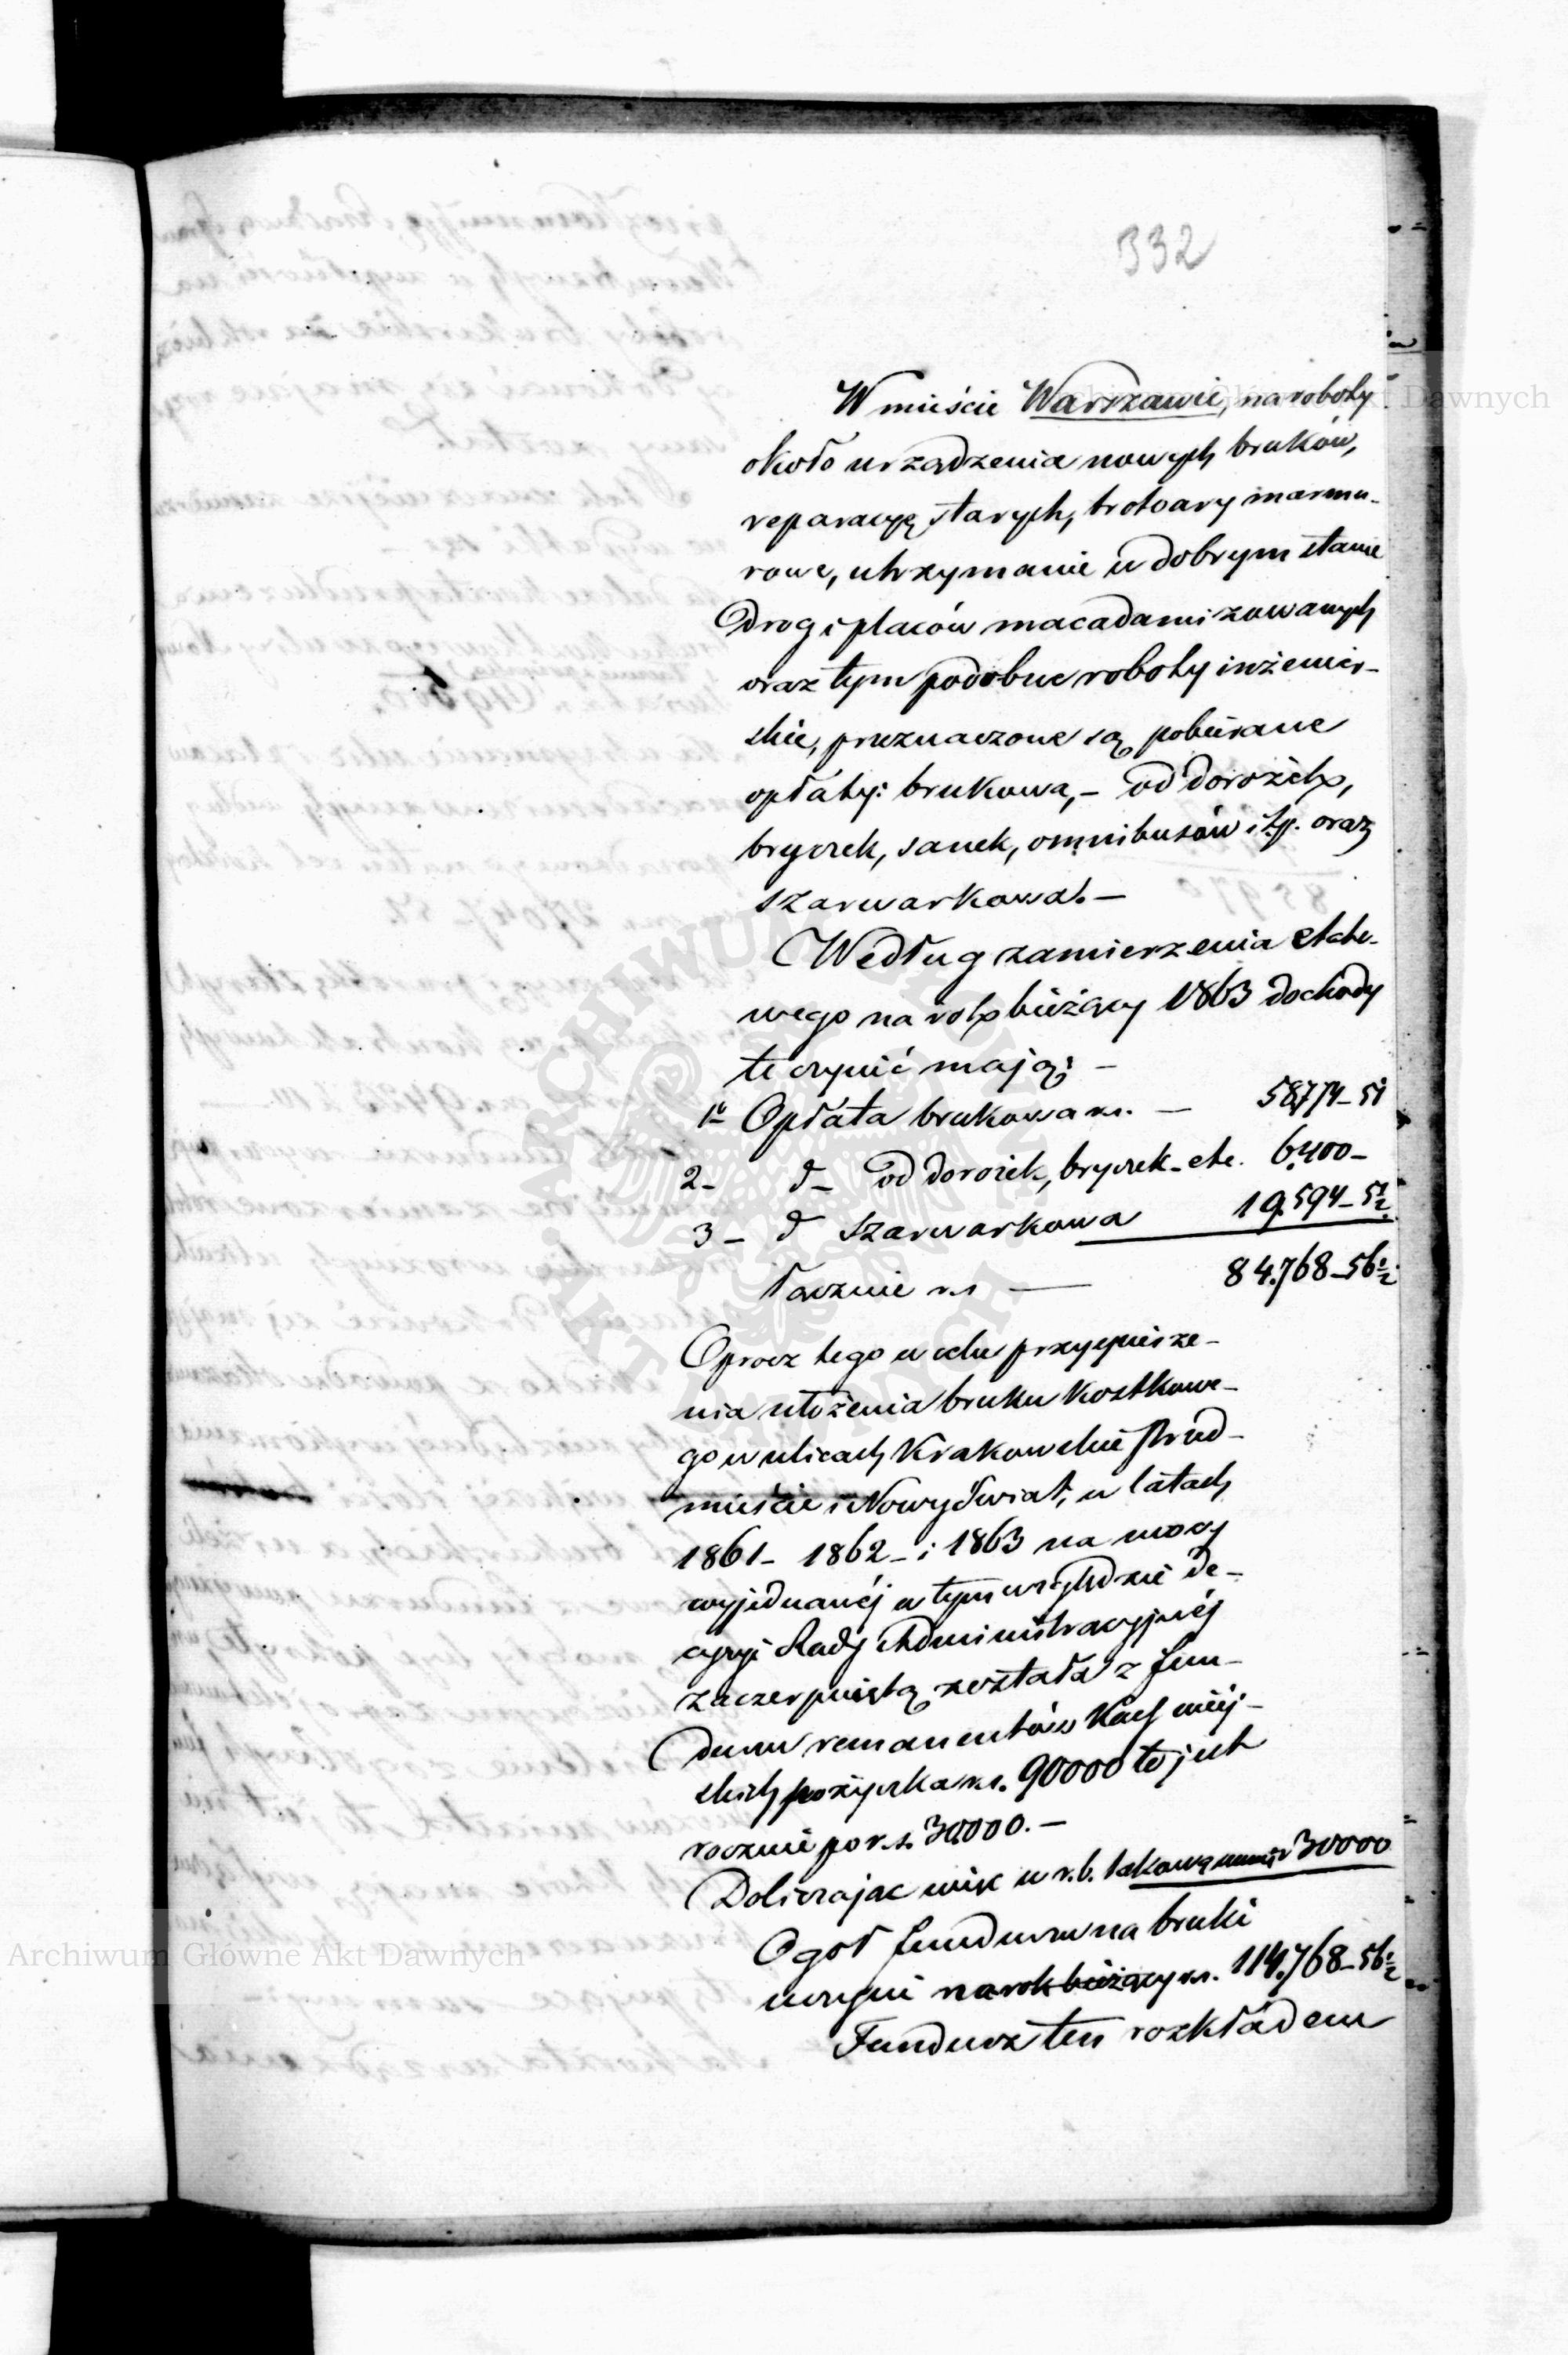 332
W mieście Warszawie, na roboty
około urządzenia nowych bruków,
reparacyę starych, trotoary marmu-
rowe, utrzymanie w dobrym stanie
Drog i placów macadamizowanych
oraz tym podobne roboty inżenier-
skie, przeznaczone są pobierane
opłaty: brukowa, – od dorożek,
bryczek, sanek, omnibusów itp. oraz
szarwarkowa. –
Według zamierzenia etato-
wego na rok bieżący 1863 dochody
te czynić mają: –
1º Opłata brukowa rs. – 58,774 – 51
2 – d – od dorożek, bryczek etc. 6,400 –
3 – d szarwarkowa 19.594 – 5 1/2
Łącznie rs – 84.768 – 56 1/2
Oprocz tego w celu przyspiesze-
nia ułożenia bruku kostkowe-
go w ulicach Krakowskie Przed-
mieście i Nowy Świat, w latach
1861 – 1862 – i 1863 na mocy
wyjednanéj w tym względzie De-
cyzyi Rady Administracyjnéj
zaczerpniętą została z fun-
duszu remanentów Kass miej-
skich pożyczka rs. 90000 to jest
rocznie po r.s. 30,000. –
Doliczając więc w r.b. takową summę 30000
Ogoł funduszu na bruki
uczyni na rok bieżący rs. 114.768 – 56 1/2
Fundusz ten rozkładem
Archiwum Główne Akt Dawnych
ARCHIWUM GŁÓWNE AKT DAWNYCH
Archiwum Główne Akt Dawnych